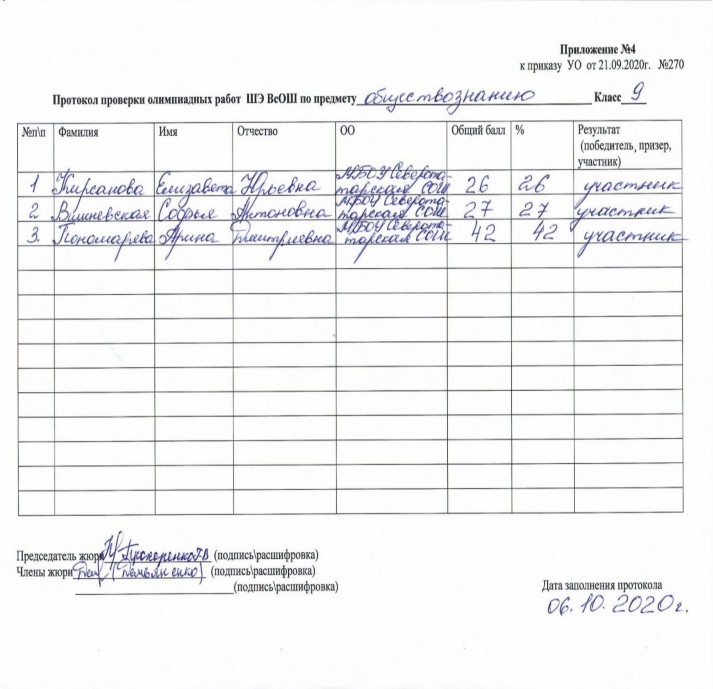 Приложение №4
к приказу УО от 21.09.2020г. №270
Протокол проверки олимпиадных работ ШЭ ВсОШ по предмету обществознанию Класс 9
№п\п Фамилия Имя Отчество ОО Общий балл % Результат (победитель, призер, участник)
1 Кирсанова Елизавета Юрьевна МБОУ Северотатарская СОШ 26 26 участник
2 Вишневская Софья Антоновна МБОУ Северотатарская СОШ 27 27 участник
3. Пономарева Арина Дмитриевна МБОУ Северотатарская СОШ 42 42 участник
Председатель жюри Прохоренко Г.В (подпись\расшифровка)
Члены жюри (Демьяненко) (подпись\расшифровка)
(подпись\расшифровка)
Дата заполнения протокола
06.10.2020г.